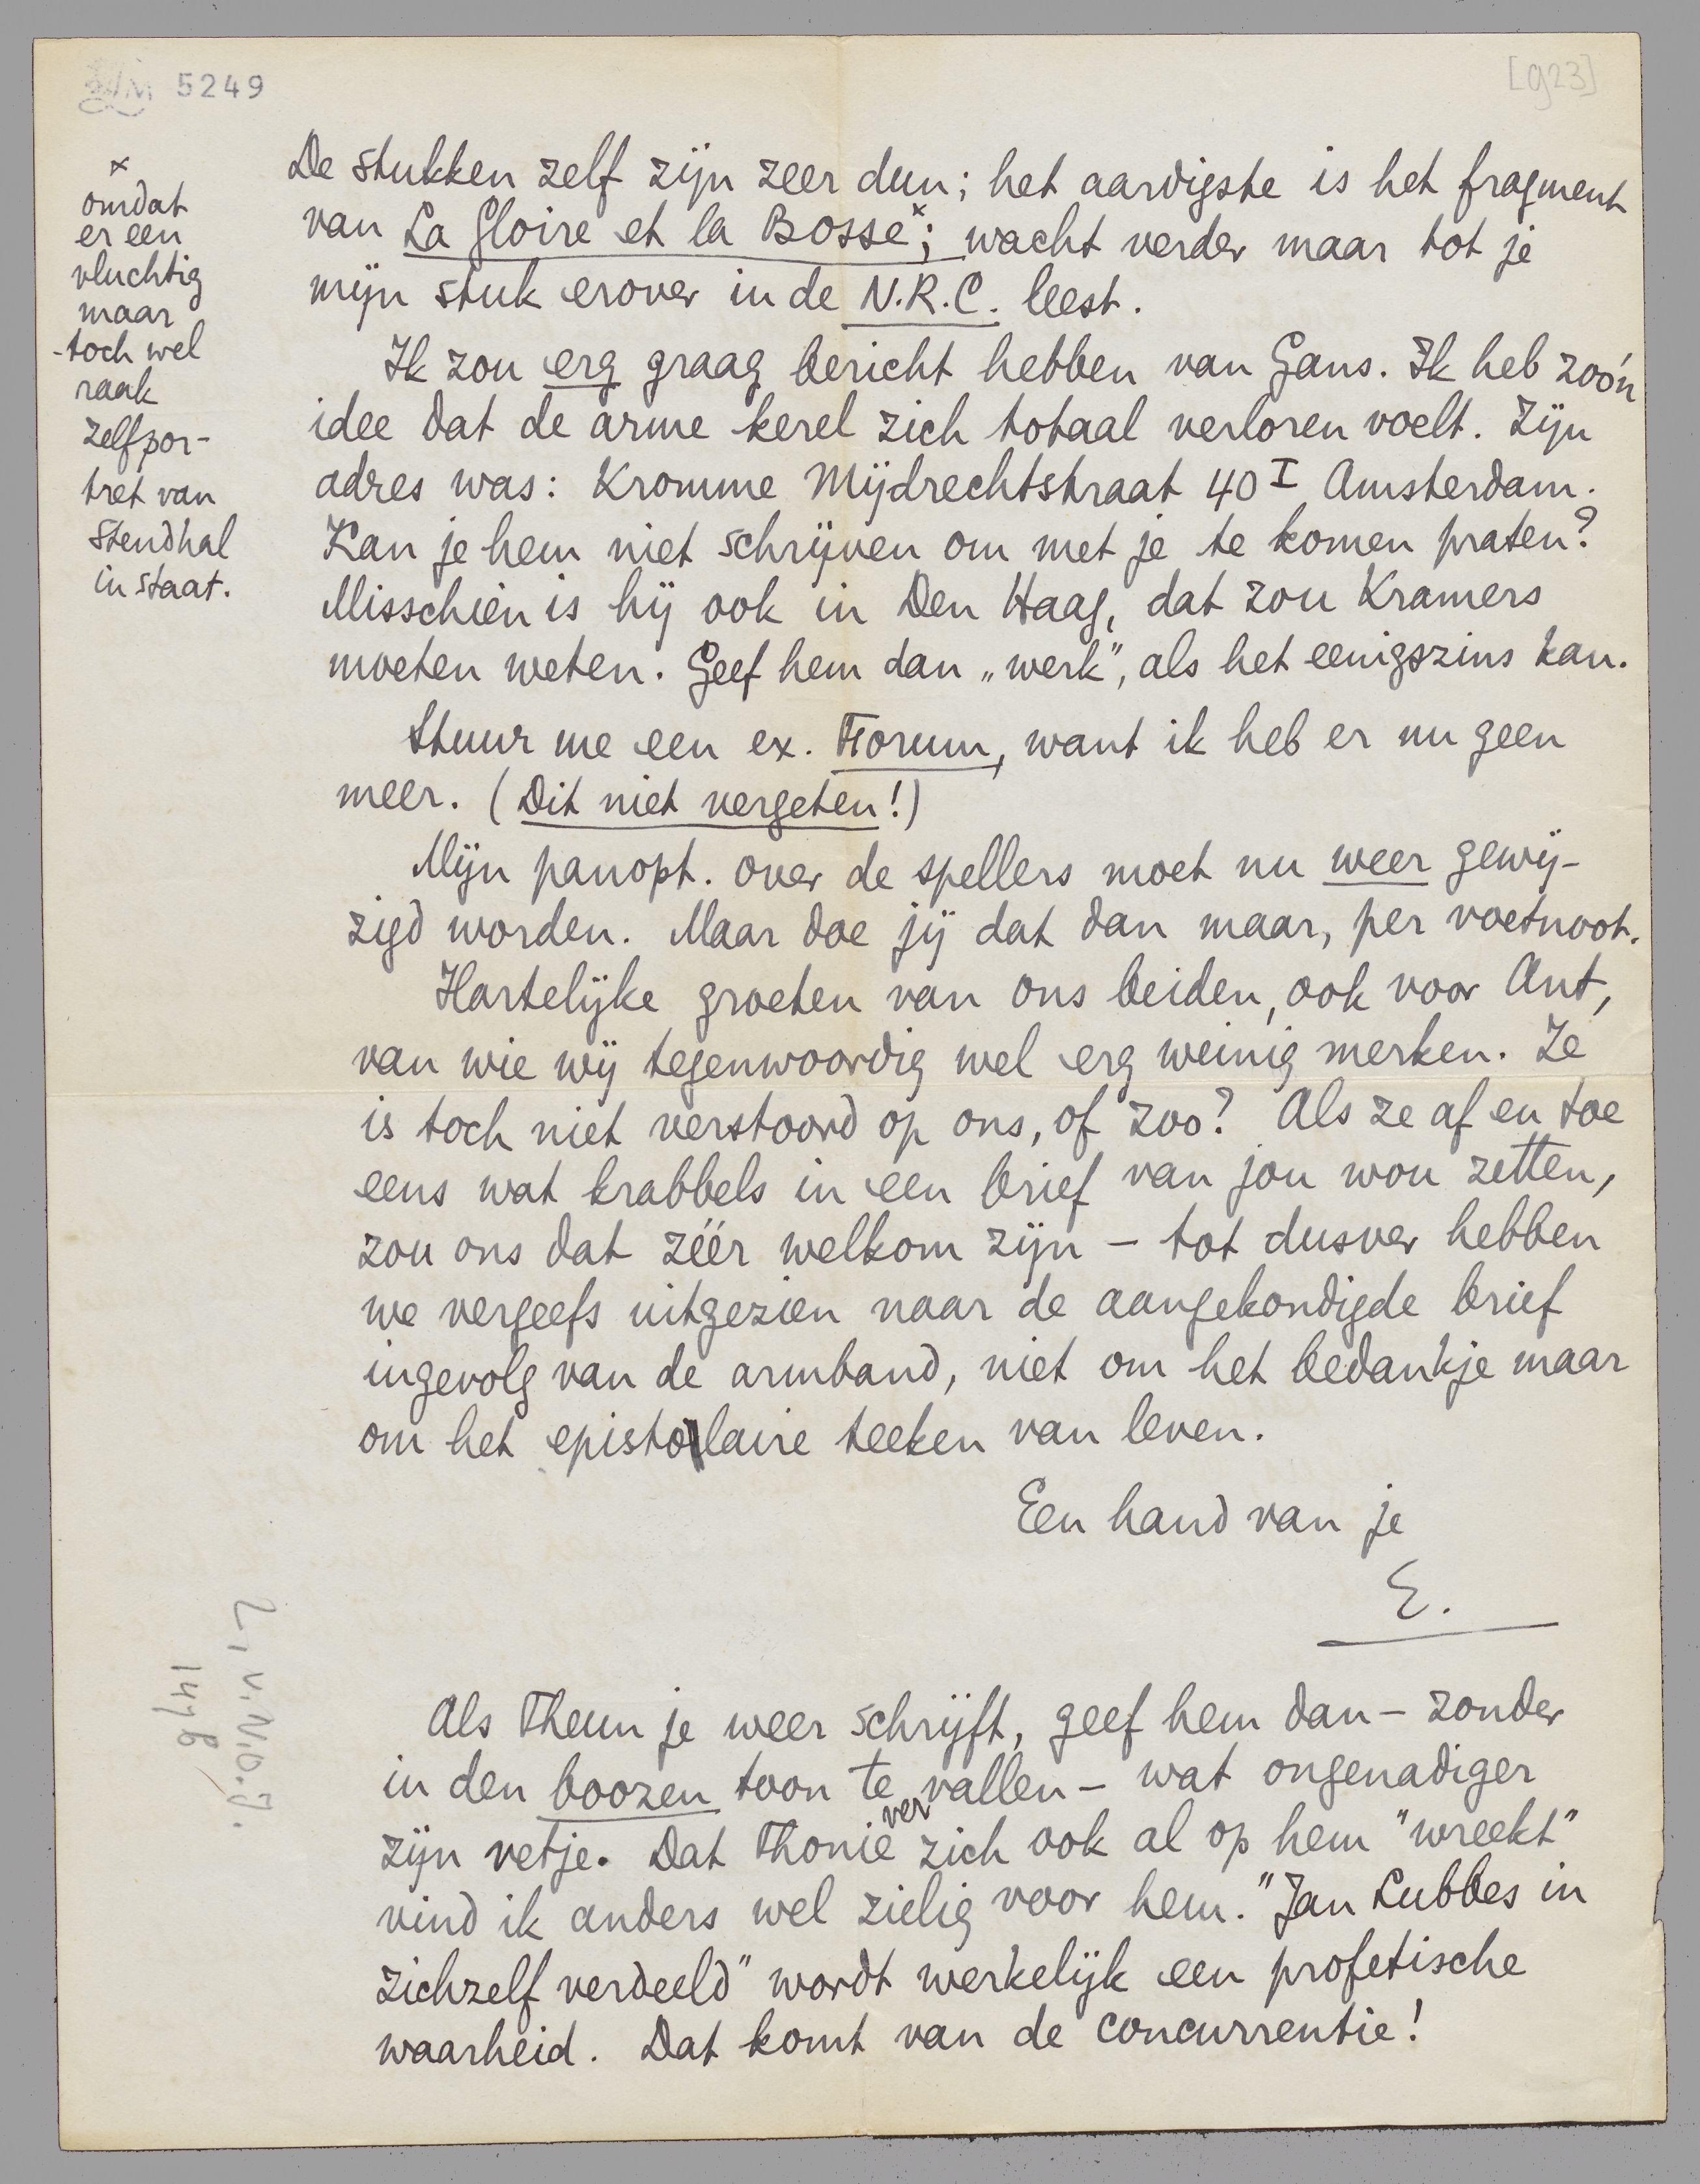 5249
[923]
De stukken zelf zijn zeer dun; het aardigste is het fragment
van La Gloire et la Bosse x; wacht verder maar tot je
mijn stuk erover in de N.R.C. leest.
x
omdat
er een
vluchtig
maar
-toch wel
raak
zelfpor-
tret van
Stendhal
in staat.
Ik zou erg graag bericht hebben van Gans. Ik heb zoo'n
idee dat de arme kerel zich totaal verloren voelt. Zijn
adres was: Kromme Mijdrechtstraat 40 I Amsterdam.
Kan je hem niet schrijven om met je te komen praten?
Misschien is hij ook in Den Haag, dat zou Kramers
moeten weten. Geef hem dan „werk”, als het eenigszins kan.
Stuur me een ex. Forum, want ik heb er nu geen
meer. (Dit niet vergeten!)
Mijn panopt. over de spellers moet nu weer gewij-
zigd worden. Maar doe jij dat dan maar, per voetnoot.
Hartelijke groeten van ons beiden, ook voor Ant,
van wie wij tegenwoordig wel erg weinig merken. Ze
is toch niet verstoord op ons, of zoo? Als ze af en toe
eens wat krabbels in een brief van jou wou zetten,
zou ons dat zéér welkom zijn – tot dusver hebben
we vergeefs uitgezien naar de aangekondigde brief
ingevolg van de armband, niet om het bedankje maar
om het epistolaire teeken van leven.
Een hand van je
E.
Als Theun je weer schrijft, geef hem dan – zonder
in den boozen toon te vervallen – wat ongenadiger
zijn vetje. Dat Thonie zich ook al op hem "wreekt"
vind ik anders wel zielig voor hem. "Jan Lubbes in
zichzelf verdeeld" wordt werkelijk een profetische
waarheid. Dat komt van de concurrentie!
147 B